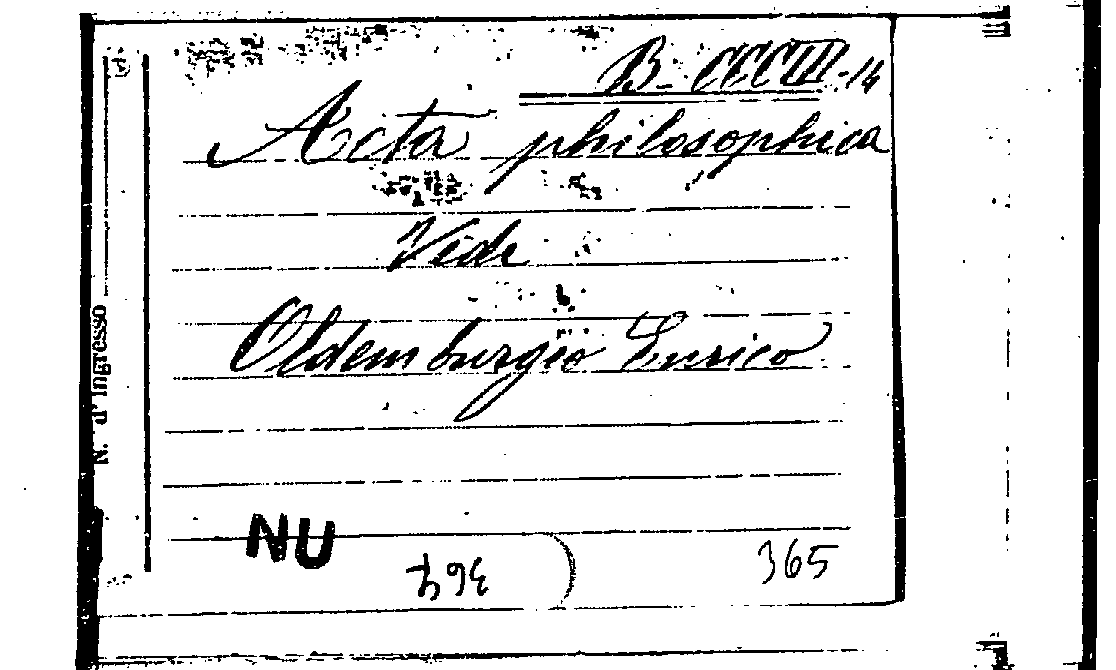 B- CCCIII-14
Acta philosophica
Vide
Oldemburgio Enrico
N. d'Ingresso
NU
364
365